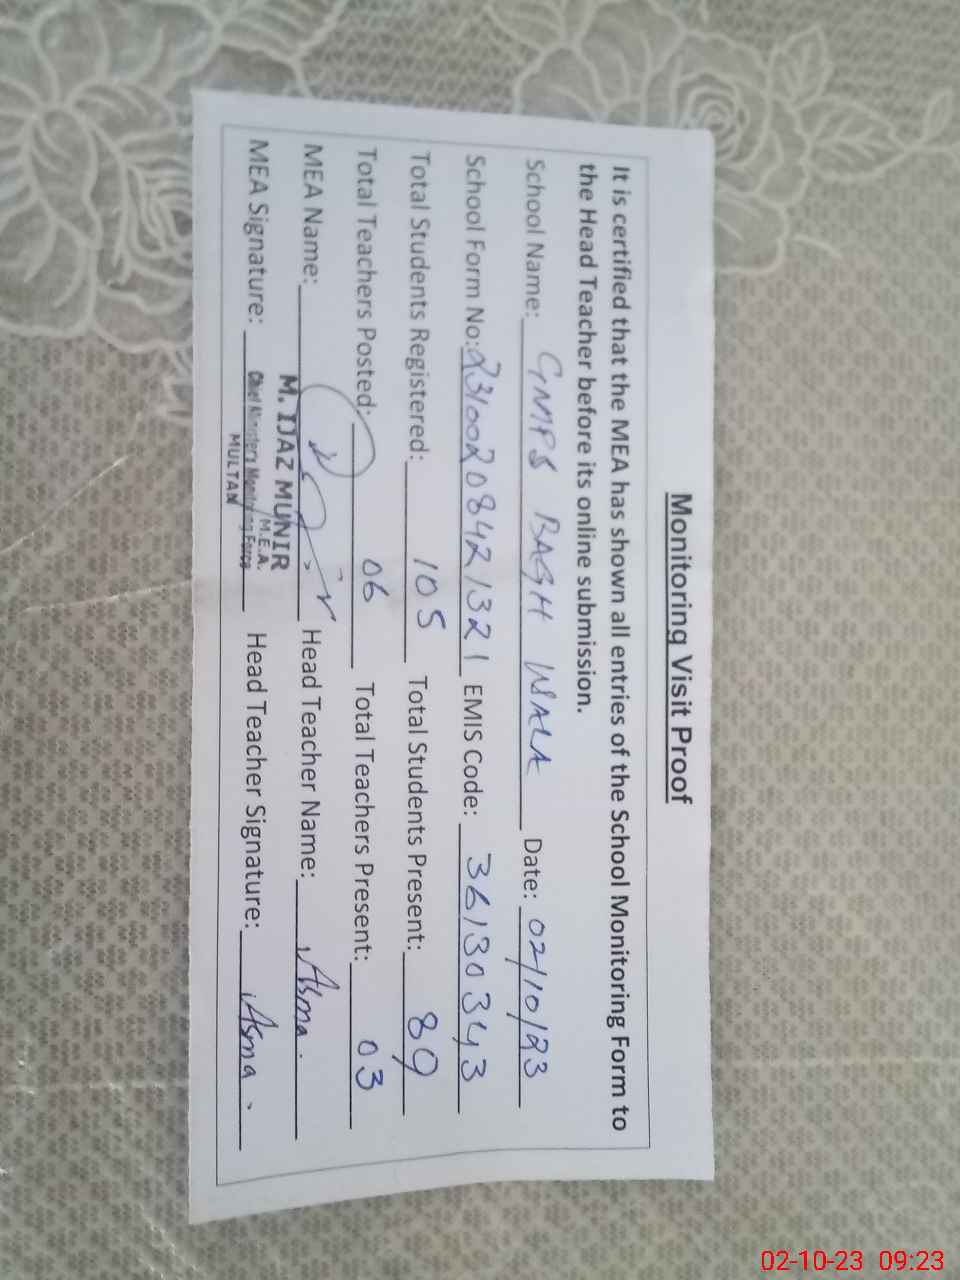 Monitoring Visit Proof
It is certified that the MEA has shown all entries of the School Monitoring Form to
the Head Teacher before its online submission.
School Name: GMPS BAGH WALA Date: 02/10/23
School Form No: 231002084213 21 EMIS Code: 36130343
Total Students Registered: 105 Total Students Present: 89
Total Teachers Posted: 06 Total Teachers Present: 03
MEA Name: Head Teacher Name: Asma.
M. IJAZ MUNIR
M.E.A.
MEA Signature: Chief Ministers Monitoring Force Head Teacher Signature: Asma.
MULTAN
02-10-23 09:23